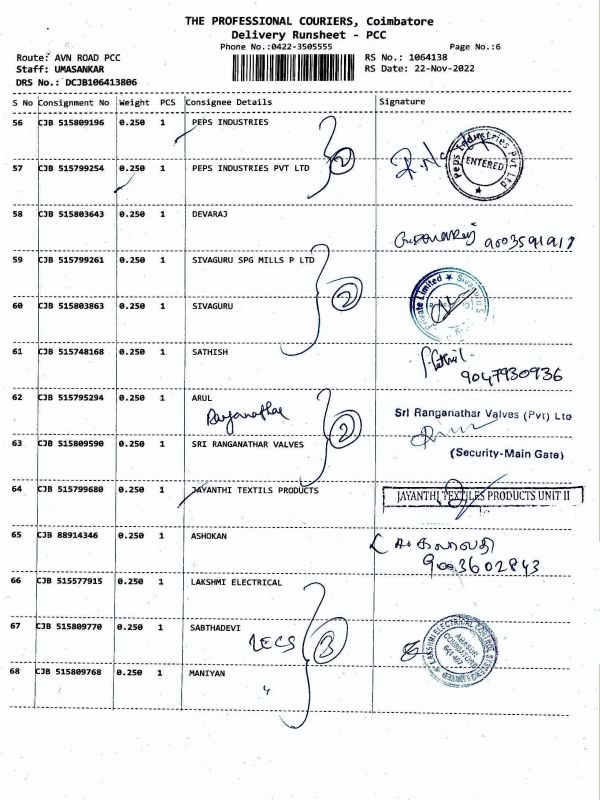 THE PROFESSIONAL COURIERS, Coimbatore
Delivery Runsheet - PCC
Phone No.:0422-3505555
Page No.:6
Route: AVN ROAD PCC
RS No.: 1064138
Staff: UMASANKAR
RS Date: 22-Nov-2022
DRS No.: DCJB106413806
S No Consignment No Weight PCS Consignee Details Signature
56 CJB 515809196 0.250 1 PEPS INDUSTRIES
Peps Industries Pvt Ltd
ENTERED
2
57 CJB 515799254 0.250 1 PEPS INDUSTRIES PVT LTD
58 CJB 515803643 0.250 1 DEVARAJ
59 CJB 515799261 0.250 1 SIVAGURU SPG MILLS P LTD
Private Limited ★
2
60 CJB 515803863 0.250 1 SIVAGURU
61 CJB 515748168 0.250 1 SATHISH
9047930936
62 CJB 515795294 0.250 1 ARUL
Sri Ranganathar Valves (Pvt) Ltd
2
63 CJB 515809590 0.250 1 SRI RANGANATHAR VALVES
(Security-Main Gate)
64 CJB 515799680 0.250 1 JAYANTHI TEXTILS PRODUCTS
JAYANTHI TEXTILES PRODUCTS UNIT II
65 CJB 88914346 0.250 1 ASHOKAN
9003602843
66 CJB 515577915 0.250 1 LAKSHMI ELECTRICAL
67 CJB 515809770 0.250 1 SABTHADEVI
LECS 3
LAKSHMI ELECTRICAL CONTROL SYSTEMS
68 CJB 515809768 0.250 1 MANIYAN